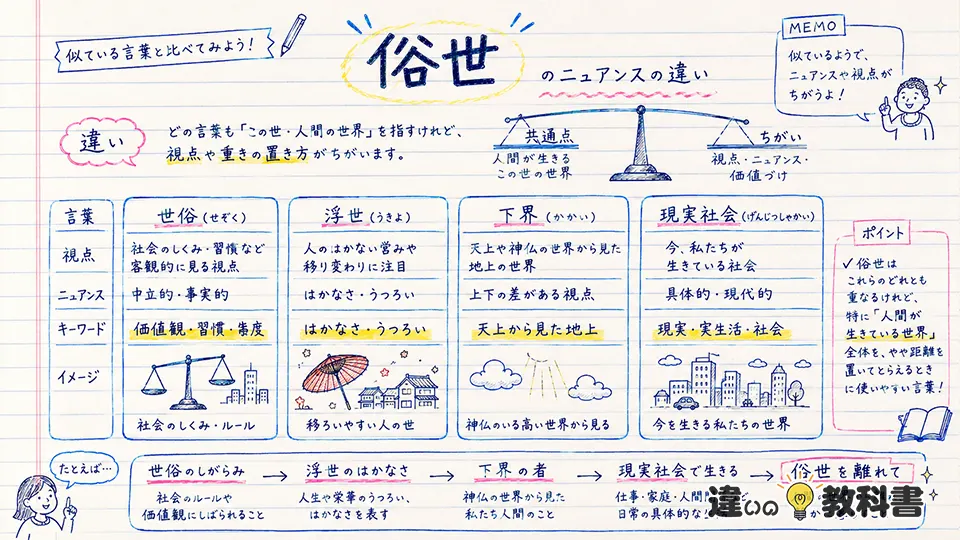 似ている言葉と比べてみよう!
俗世 のニュアンスの違い
MEMO
似ているようで、
ニュアンスや視点が
ちがうよ!
違い
どの言葉も「この世・人間の世界」を指すけれど、
視点や重きの置き方がちがいます。
共通点
人間が生きる
この世の世界
ちがい
視点・ニュアンス・
価値づけ
言葉 世俗(せぞく) 浮世(うきよ) 下界(かかい) 現実社会(げんじつしゃかい)
視点
社会のしくみ・習慣など
客観的に見る視点
人のはかない営みや
移り変わりに注目
天上や神仏の世界から見た
地上の世界
今、私たちが
生きている社会
ニュアンス 中立的・事実的 はかなさ・うつろい 上下の差がある視点 具体的・現代的
キーワード 価値観・習慣・度 はかなさ・うつろい 天上から見た地上 現実・実生活・社会
イメージ
社会のしくみ・ルール 移ろいやすい人の世 神仏のいる高い世界から見る 今を生きる私たちの世界
ポイント
✓俗世は
これらのどれとも
重なるけれど、
特に「人間が
生きている世界」
全体を、やや距離を
置いてとらえるとき
に使いやすい言葉!
たとえば…
世俗のしがらみ → 浮世のはかなさ → 下界の者 → 現実社会で生きる → 俗世を離れて
社会のルールや
価値観にしばられること
人生や栄華のうつろい、
はかなさを表す
神仏の世界から見た
私たち人間のこと
仕事・家庭・人間
日常の具体的な
違いの教科書